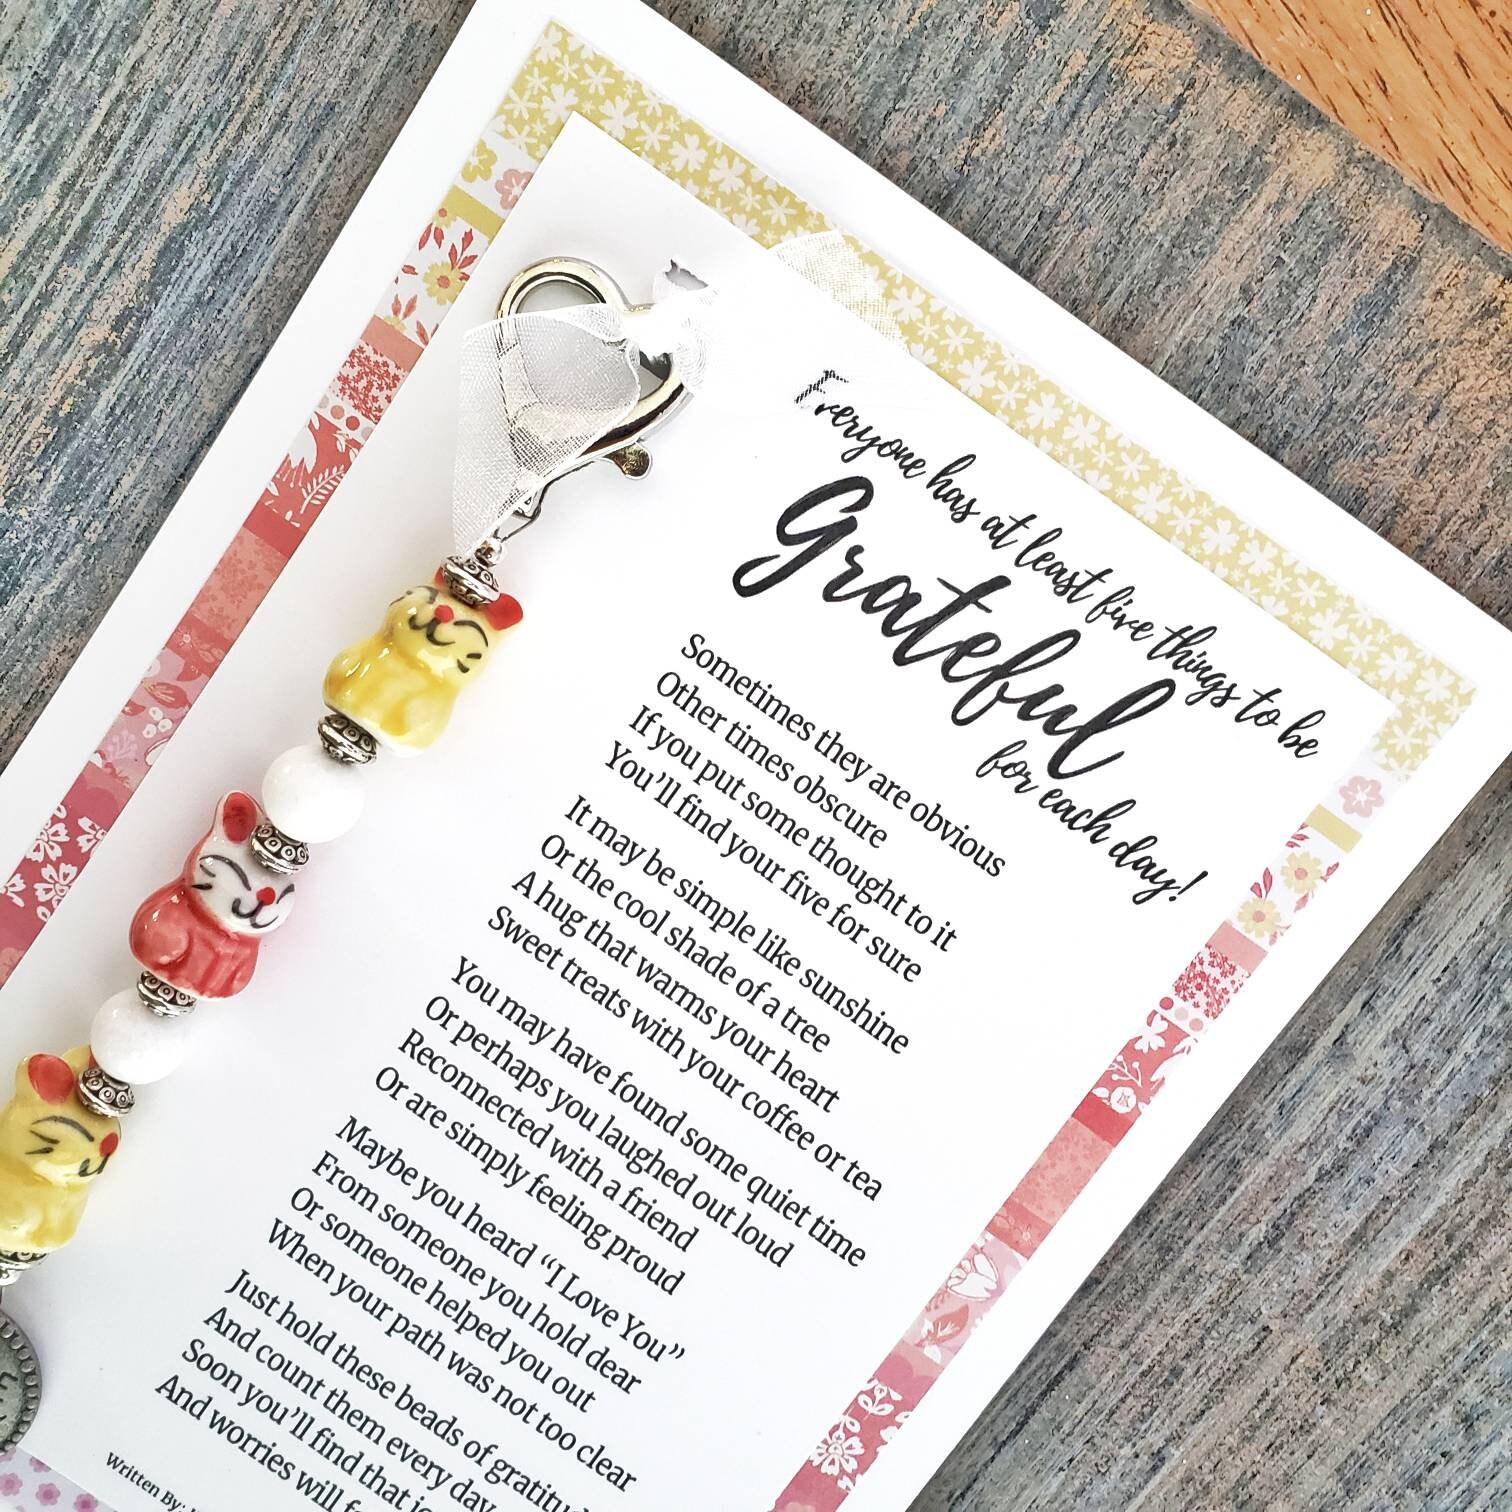 Everyone has at least five things to be
Grateful
for each day!
Sometimes they are obvious
Other times obscure
If you put some thought to it
You'll find your five for sure
It may be simple like sunshine
Or the cool shade of a tree
A hug that warms your heart
Sweet treats with your coffee or tea
You may have found some quiet time
Or perhaps you laughed out loud
Reconnected with a friend
Or are simply feeling proud
Maybe you heard “I Love You”
From someone you hold dear
Or someone helped you out
When your path was not too clear
Just hold these beads of
And count them every day
Soon you'll find that
And worries will
Written By: